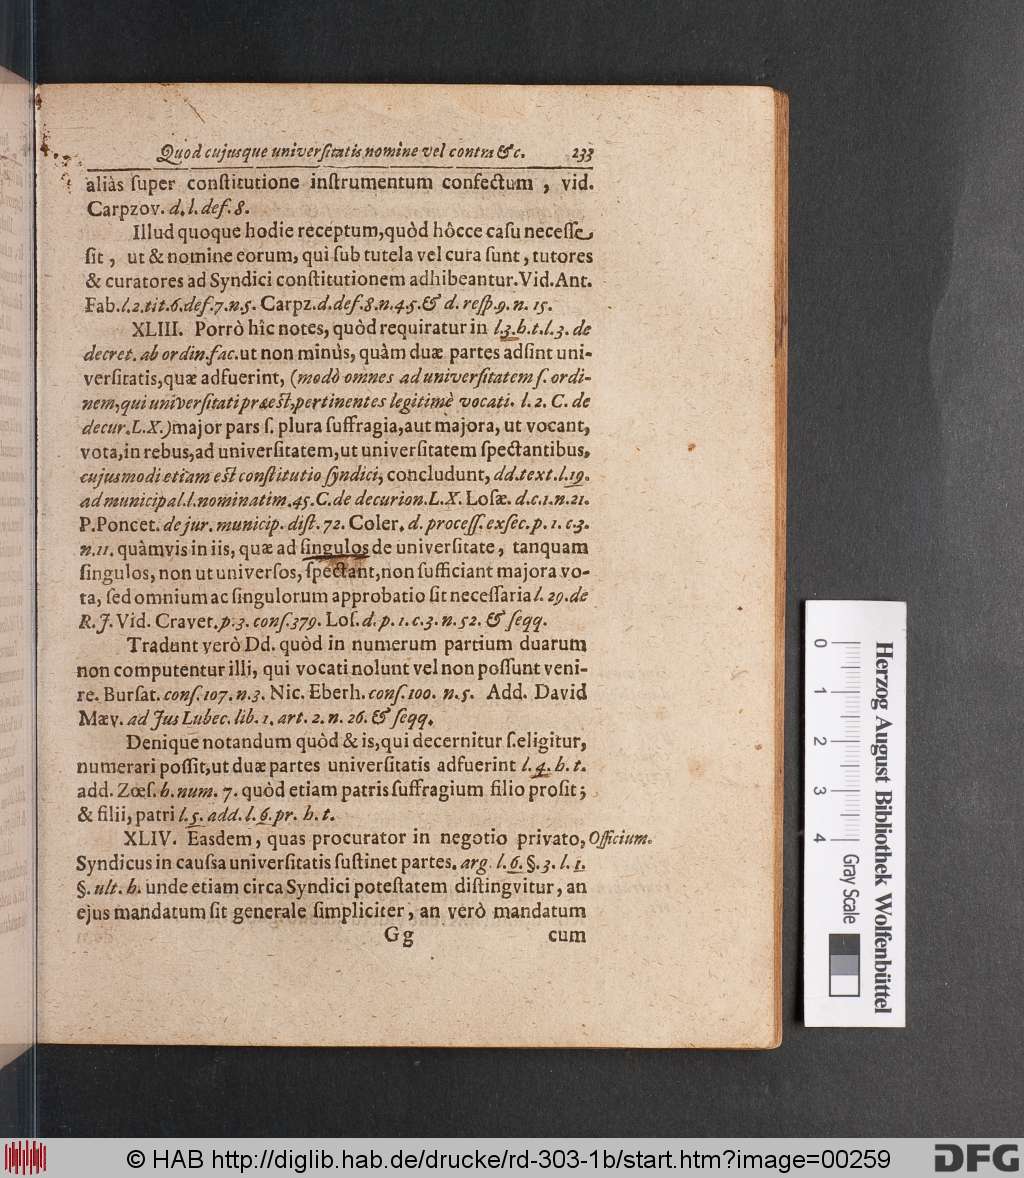 Quod cujusque universitatis nomine vel contra &c. 233
aliàs super constitutione instrumentum confectum, vid.
Carpzov. d. l. def. 8.
Illud quoque hodie receptum, quòd hôcce casu necesse
sit, ut & nomine eorum, qui sub tutela vel cura sunt, tutores
& curatores ad Syndici constitutionem adhibeantur. Vid. Ant.
Fab. l. 2. tit. 6. def. 7. n. 5. Carpz. d. def. 8. n. 4. 5. & d. resp. 9. n. 15.
XLIII. Porrò hîc notes, quòd requiratur in l. 3. h. t. l. 3. de
decret. ab ordin. fac. ut non minùs, quàm duæ partes adsint uni-
versitatis, quæ adfuerint, (modò omnes ad universitatem s. ordi-
nem, qui universitati præest, pertinentes legitimè vocati. l. 2. C. de
decur. L. X.) major pars s. plura suffragia, aut majora, ut vocant,
vota, in rebus, ad universitatem, ut universitatem spectantibus,
cujusmodi etiam est constitutio syndici, concludunt, dd. text. l. 19.
ad municipal. l. nominatim. 45. C. de decurion. L. X. Losæ. d. c. 1. n. 21.
P. Poncet. de jur. municip. dist. 72. Coler. d. process. exsec. p. 1. c. 3.
n. 11. quàmvis in iis, quæ ad singulos de universitate, tanquam
singulos, non ut universos, spectant, non sufficiant majora vo-
ta, sed omnium ac singulorum approbatio sit necessaria l. 29. de
R. J. Vid. Cravet. p. 3. cons. 379. Los. d. p. 1. c. 3. n. 52. & seqq.
Tradunt verò Dd. quòd in numerum partium duarum
non computentur illi, qui vocati nolunt vel non possunt veni-
re. Bursat. cons. 107. n. 3. Nic. Eberh. cons. 100. n. 5. Add. David
Mæv. ad Jus Lubec. lib. 1. art. 2. n. 26. & seqq.
Denique notandum quòd & is, qui decernitur s. eligitur,
numerari possit, ut duæ partes universitatis adfuerint l. 4. h. t.
add. Zœs. h. num. 7. quòd etiam patris suffragium filio prosit;
& filii, patri l. 5. add. l. 6. pr. h. t.
XLIV. Easdem, quas procurator in negotio privato, Officium.
Syndicus in caussa universitatis sustinet partes. arg. l. 6. §. 3. l. 1.
§. ult. h. unde etiam circa Syndici potestatem distingvitur, an
ejus mandatum sit generale simpliciter, an verò mandatum
Gg cum
0 1 2 3 4
Gray Scale
Herzog August Bibliothek Wolfenbüttel
© HAB http://diglib.hab.de/drucke/rd-303-1b/start.htm?image=00259
DFG